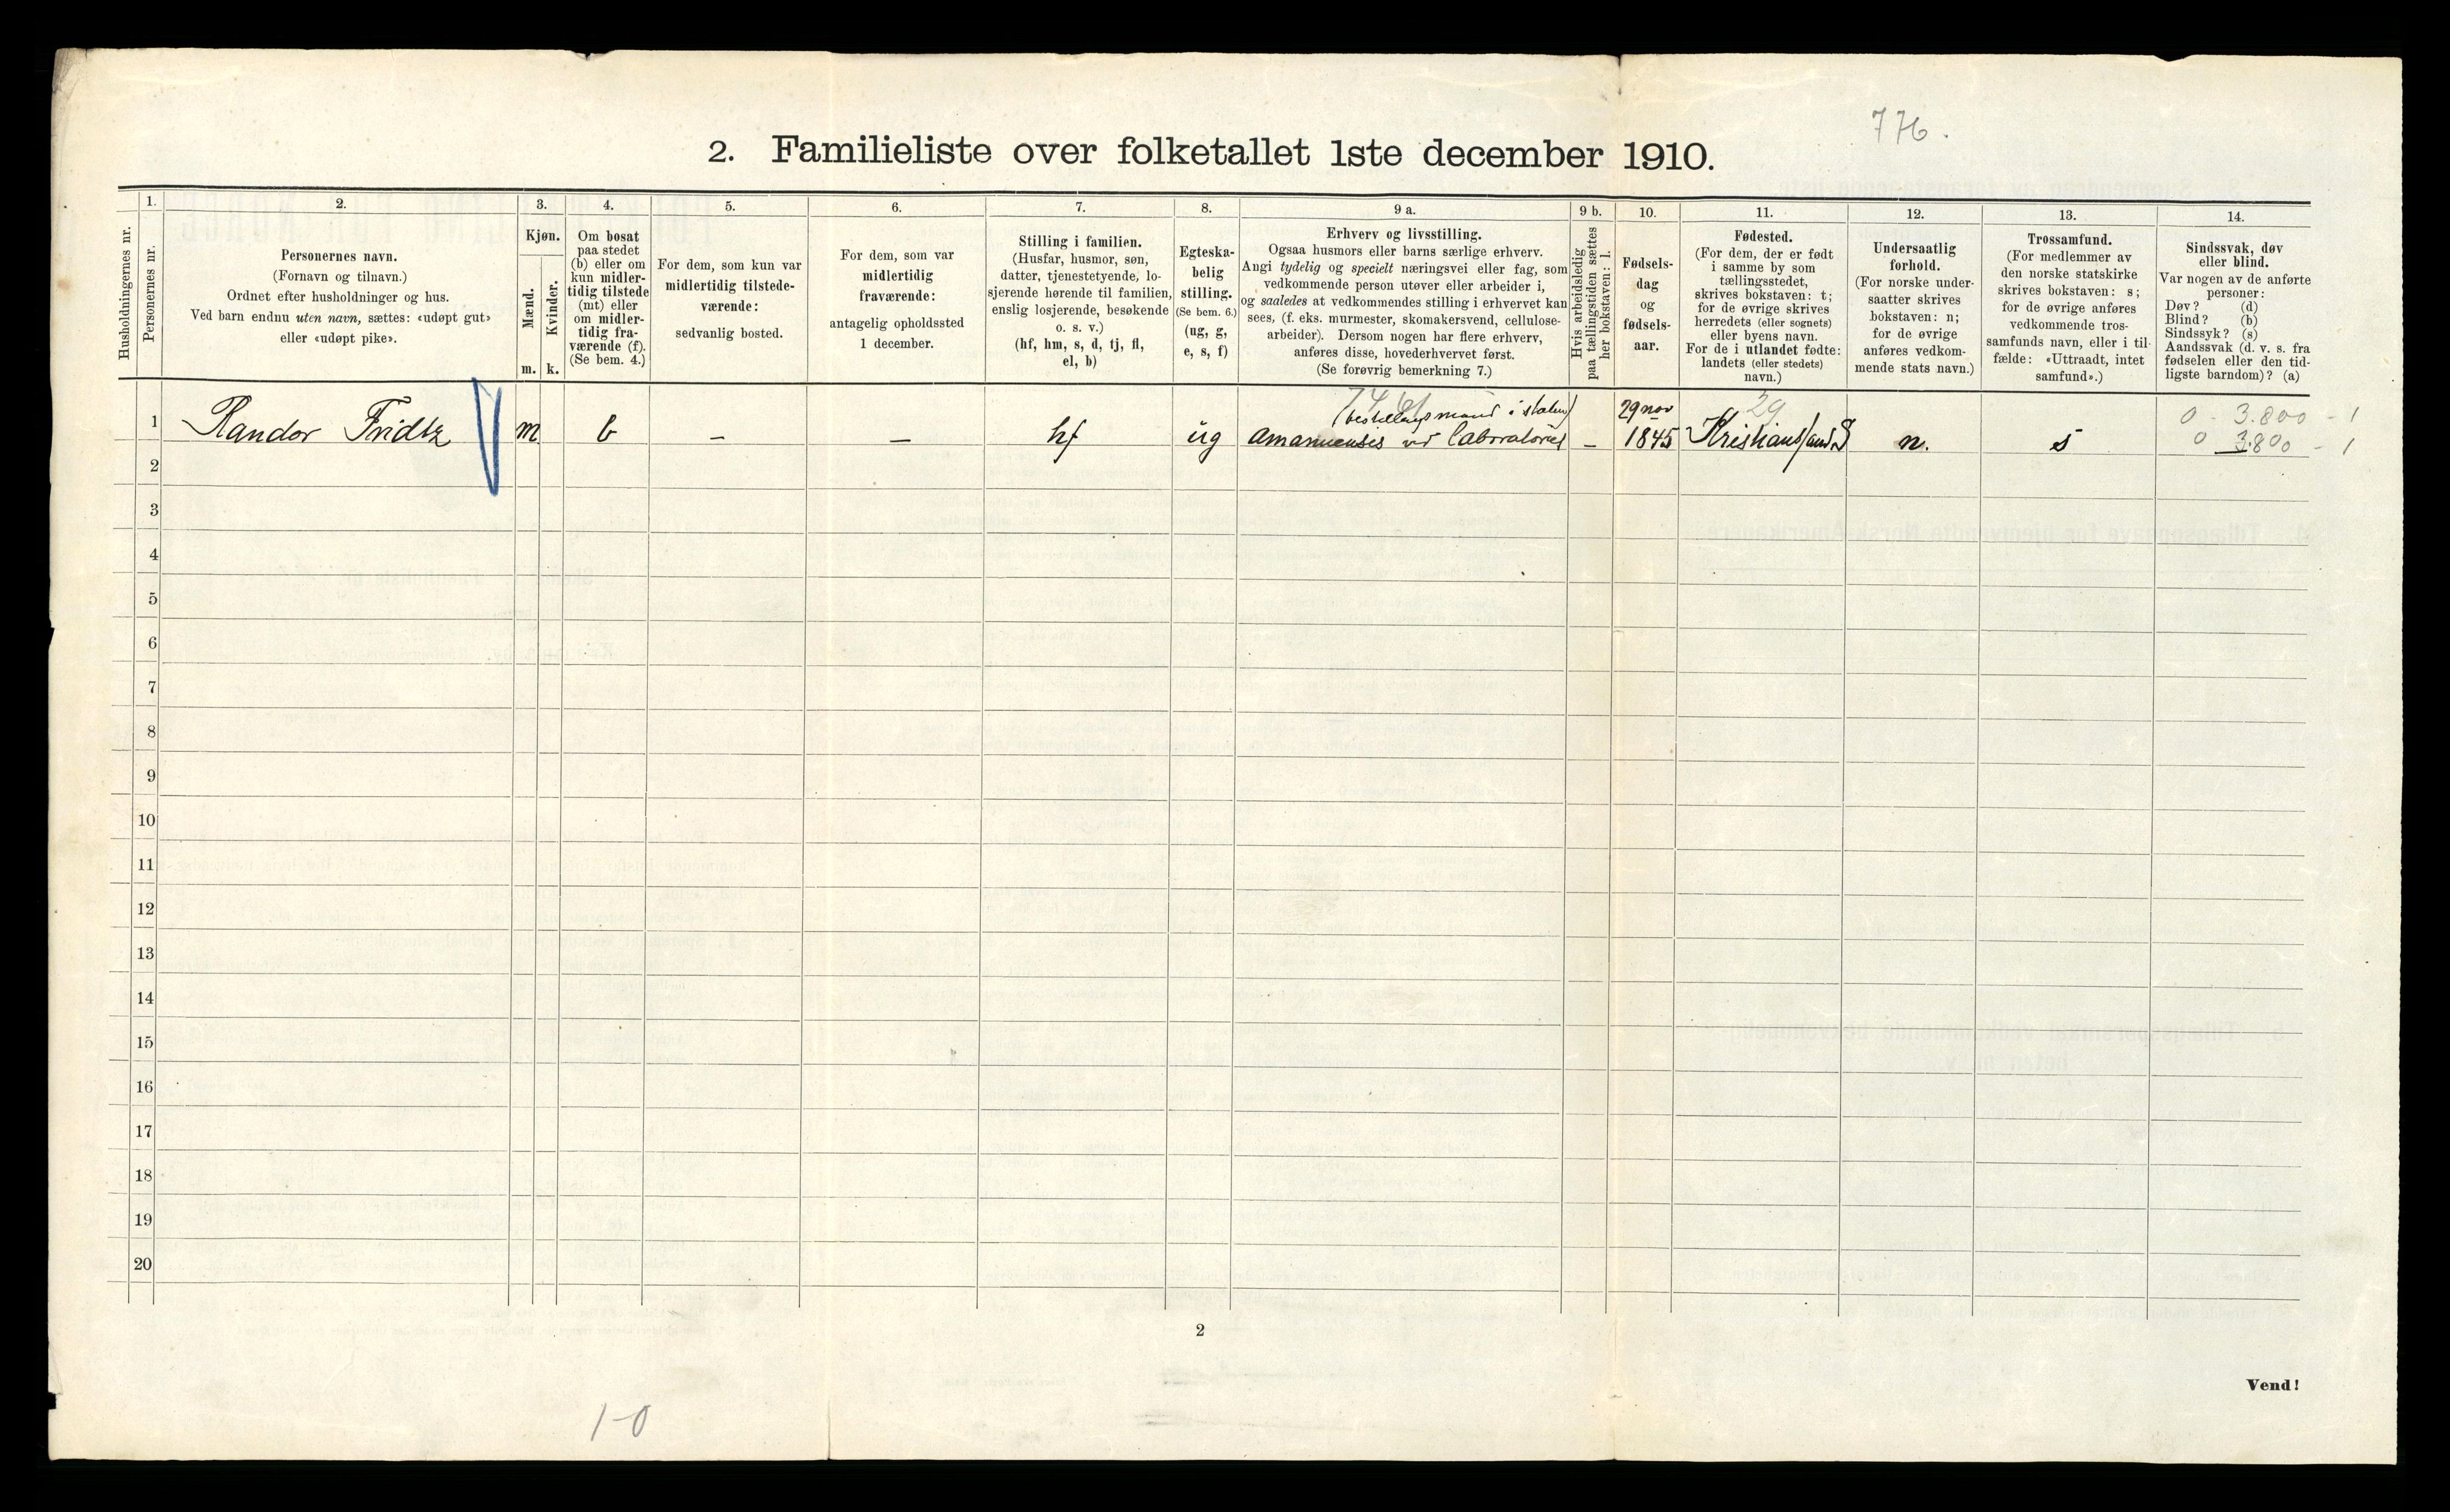 776.
2. Familieliste over folketallet 1ste december 1910.
Husholdningernes nr.
1.
Personernes nr.
2.
Personernes navn.
(Fornavn og tilnavn.)
Ordnet efter husholdninger og hus.
Ved barn endnu uten navn, sættes: «udøpt gut»
eller «udøpt pike».
3.
Kjøn.
Mænd.
Kvinder.
m.
k.
4.
Om bosat
paa stedet
(b) eller om
kun midler-
tidig tilstede
(mt) eller
om midler-
tidig fra-
værende (f).
(Se bem. 4.)
5.
For dem, som kun var
midlertidig tilstede-
værende:
sedvanlig bosted.
6.
For dem, som var
midlertidig
fraværende:
antagelig opholdssted
1 december.
7.
Stilling i familien.
(Husfar, husmor, søn,
datter, tjenestetyende, lo-
sjerende hørende til familien,
enslig losjerende, besøkende
o. s. v.)
(hf, hm, s, d, tj, fl,
el, b)
8.
Egteska-
belig
stilling.
(Se bem. 6.)
(ug, g,
e, s, f)
9 a.
Erhverv og livsstilling.
Ogsaa husmors eller barns særlige erhverv.
Angi tydelig og specielt næringsvei eller fag, som
vedkommende person utøver eller arbeider i,
og saaledes at vedkommendes stilling i erhvervet kan
sees, (f. eks. murmester, skomakersvend, cellulose-
arbeider). Dersom nogen har flere erhverv,
anføres disse, hovederhvervet først.
(Se forøvrig bemerkning 7.)
9 b.
Hvis arbeidsledig
paa tællingstiden sættes
her bokstaven: l.
10.
Fødsels-
dag
og
fødsels-
aar.
11.
Fødested.
(For dem, der er født
i samme by som
tællingsstedet,
skrives bokstaven: t;
for de øvrige skrives
herredets (eller sognets)
eller byens navn.
For de i utlandet fødte:
landets (eller stedets)
navn.)
12.
Undersaatlig
forhold.
(For norske under-
saatter skrives
bokstaven: n;
for de øvrige
anføres vedkom-
mende stats navn.)
13.
Trossamfund.
(For medlemmer av
den norske statskirke
skrives bokstaven: s;
for de øvrige anføres
vedkommende tros-
samfunds navn, eller i til-
fælde: «Uttraadt, intet
samfund».)
14.
Sindssvak, døv
eller blind.
Var nogen av de anførte
personer:
Døv? (d)
Blind? (b)
Sindssyk? (s)
Aandssvak (d. v. s. fra
fødselen eller den tid-
ligste barndom)? (a)
(bestillingsmand i staten) 29 nov 29 0 - 3.800 - 1
1 Randor Fridtz m b – – hf ug amanuensis ved laboratoriet – 1845 Kristiansand S n. s 0 3.800 - 1
2
3
4
5
6
7
8
9
10
11
12
13
14
15
16
17
18
19
20
2
Vend!
1-0